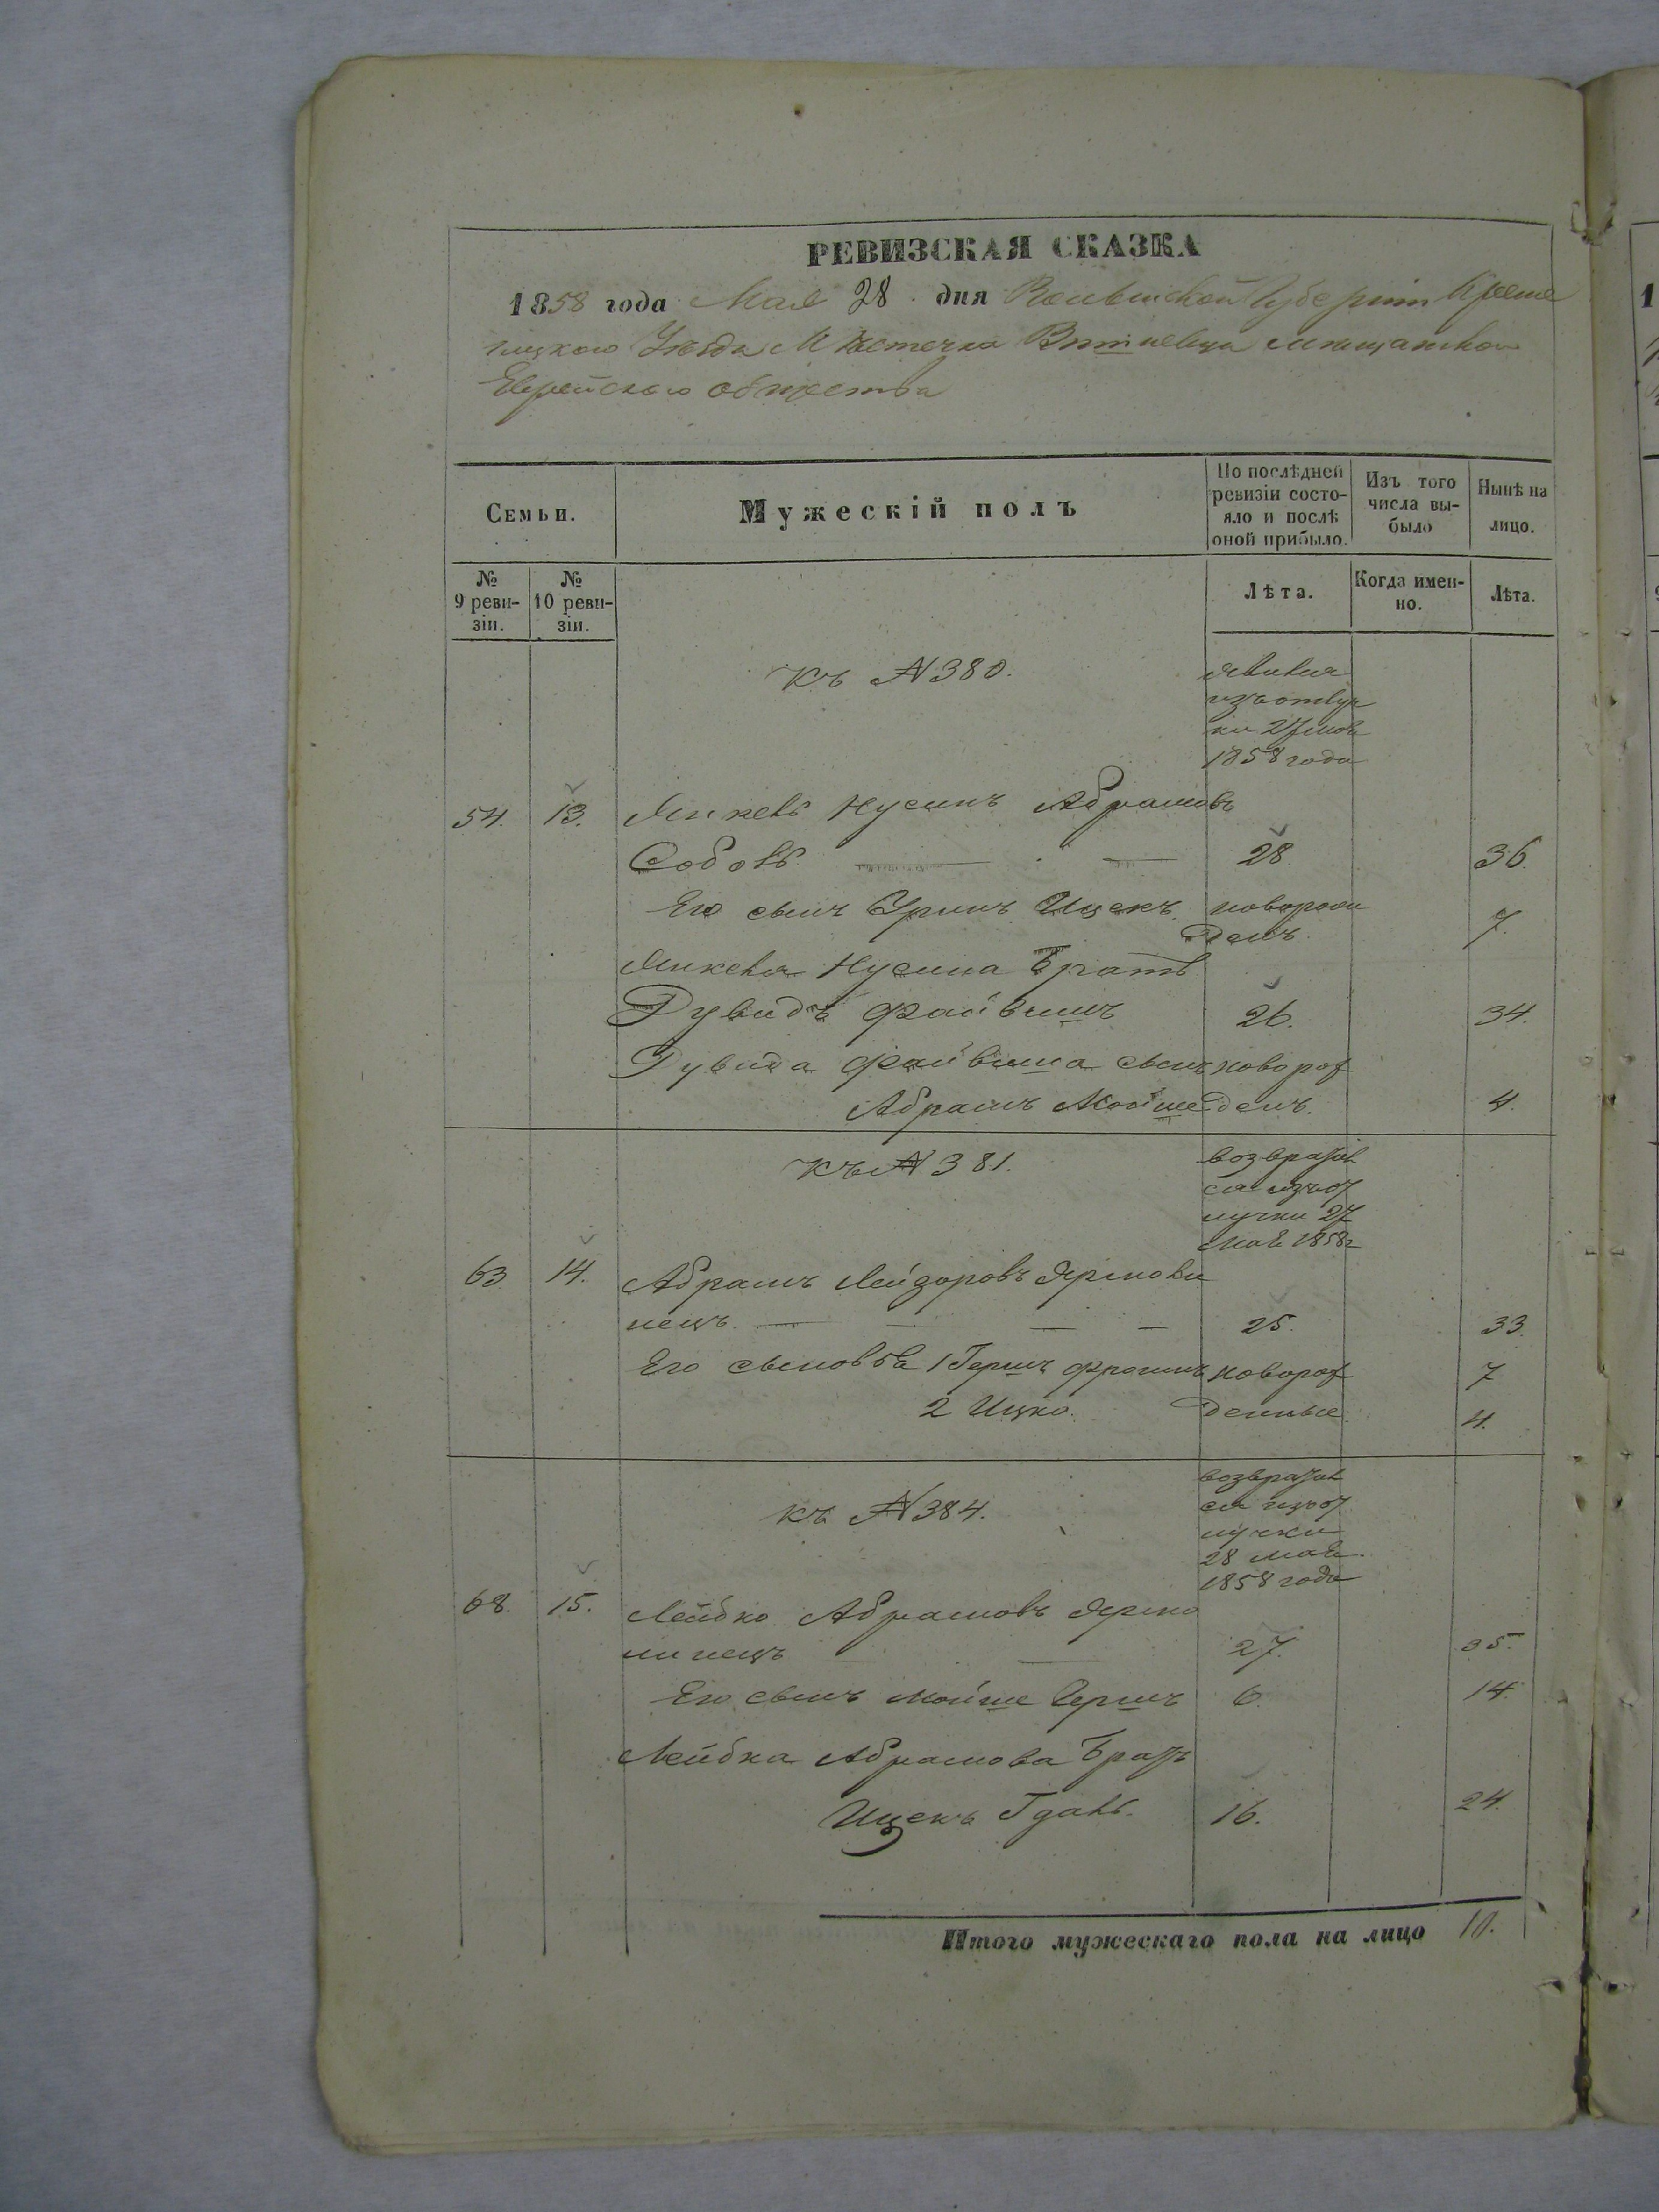 РЕВИЗСКАЯ СКАЗКА
1858 года Мая 28 дня Волынской Губерніи Креме
нецкаго Уѣзда Мѣстечка Вишневца мѣщанскаго
Еврейскаго общества
Семьи.
Мужескій полъ
По послѣдней ревизіи состояло и послѣ оной прибыло.
Изъ того числа выбыло
Нынѣ на лицо.
№ 9 ревизіи.
№ 10 ревизіи.
Лѣта.
Когда именно.
Лѣта.
Къ № 380.
явился
изъ отлуч
ки 27 мая
1858 года
54. 13. Нусинъ Абрамовъ
Соболь 28 36.
Его сынъ Ицекъ новорож
денъ. 7.
Нусина братъ
Дувидъ Файвишъ 26. 34.
Дувида Файвиша сынъ новорож
Абрамъ Мойше денъ. 4.
Къ № 381.
возвратил
ся изъ от
лучки 27
Мая 1858 г
63. 14. Абрамъ Лейзоровъ Ярмоли
нецъ 25. 33.
Его сыновья 1 Гершъ Фроимъ новорож 7
2 Ицко. денные 4.
Къ № 384.
возвратил
ся изъ от
лучки
28 мая
1858 года
68. 15. Лейбко Абрамовъ Ярмо
линецъ 27. 35.
Его сынъ Мойше Гершъ 6. 14.
Лейбка Абрамова Братъ
Ицекъ 16. 24.
Итого мужескаго пола на лицо 10.